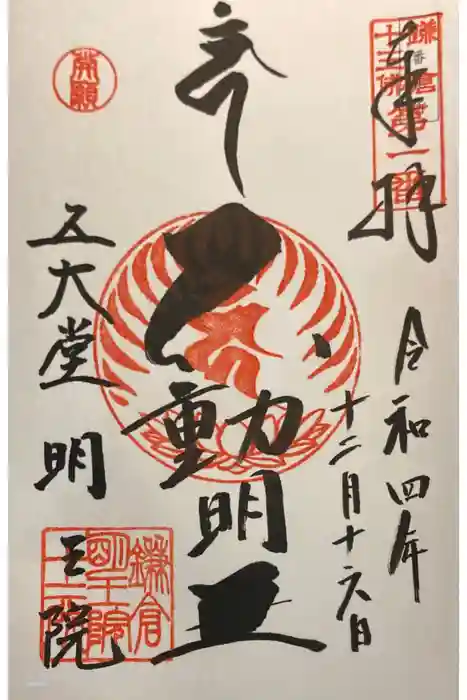 奉拝
鎌倉
十三佛第一番
令和四年
十二月十六日
不動明王
開願
五大堂 明王院
鎌倉
明王院